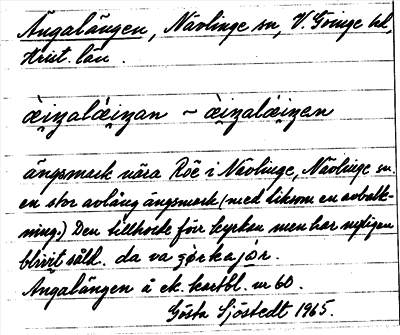 Ängalängen, Nävlinge sn, V. Göinge hd,
Krist. län.
ängsmark nära Röe i Nävlinge, Nävlinge sn.
en stor avlång ängsmark (med liksom en avbalk-
ning.) Den tillhörde förr kyrkan men har nyligen
blivit såld. da va
Ängalängen å ek. kartbl. nr 60.
Gösta Sjöstedt 1965.